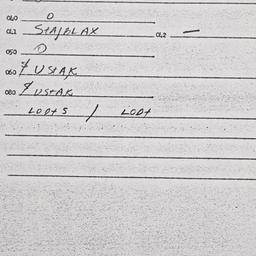 010 0
011 STAJBLAX 012 —
050 0
060 7 USTAK
080 9 USTAK
LODTS / LODT